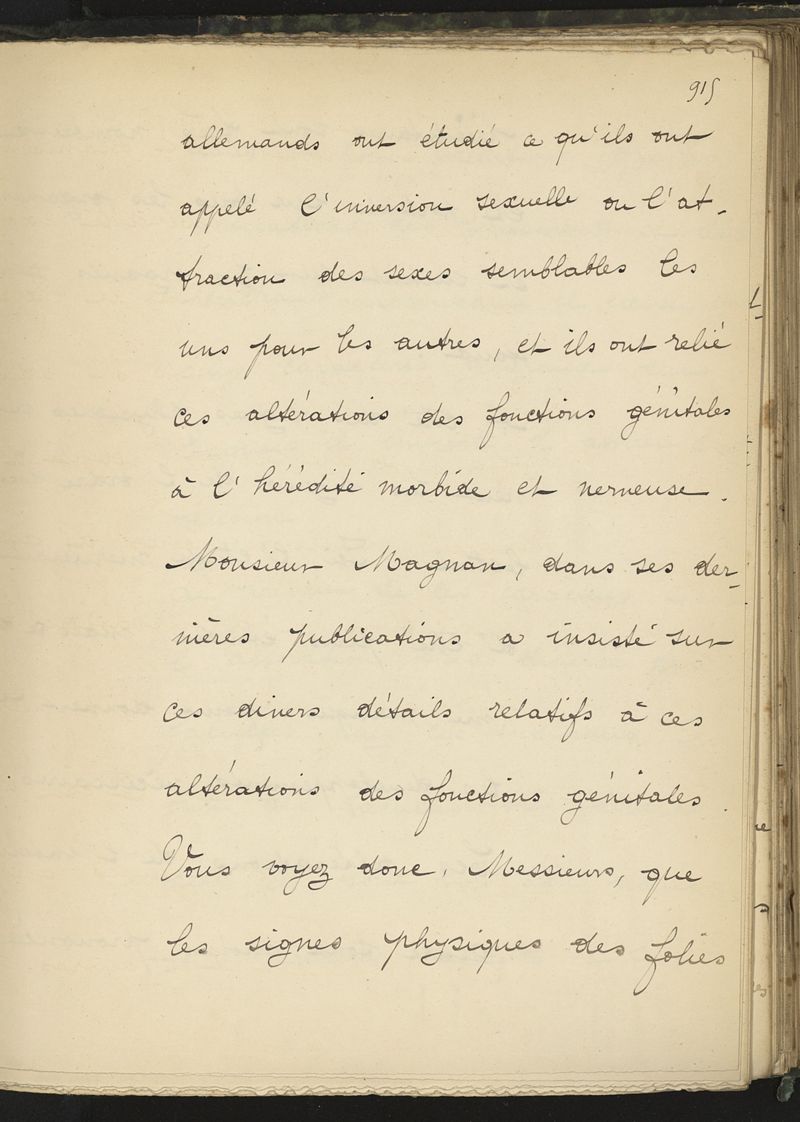 915
allemands ont étudié ce qu'ils ont
appelé l'inversion sexuelle ou l'at-
traction des sexes semblables les
uns pour les autres, et ils ont relié
ces altérations des fonctions génitales
à l'hérédité morbide et nerveuse.
Monsieur Magnan, dans ses der-
nières publications a insisté sur
ces divers détails relatifs à ces
altérations des fonctions génitales.
Vous voyez donc, Messieurs, que
les signes physiques des folies